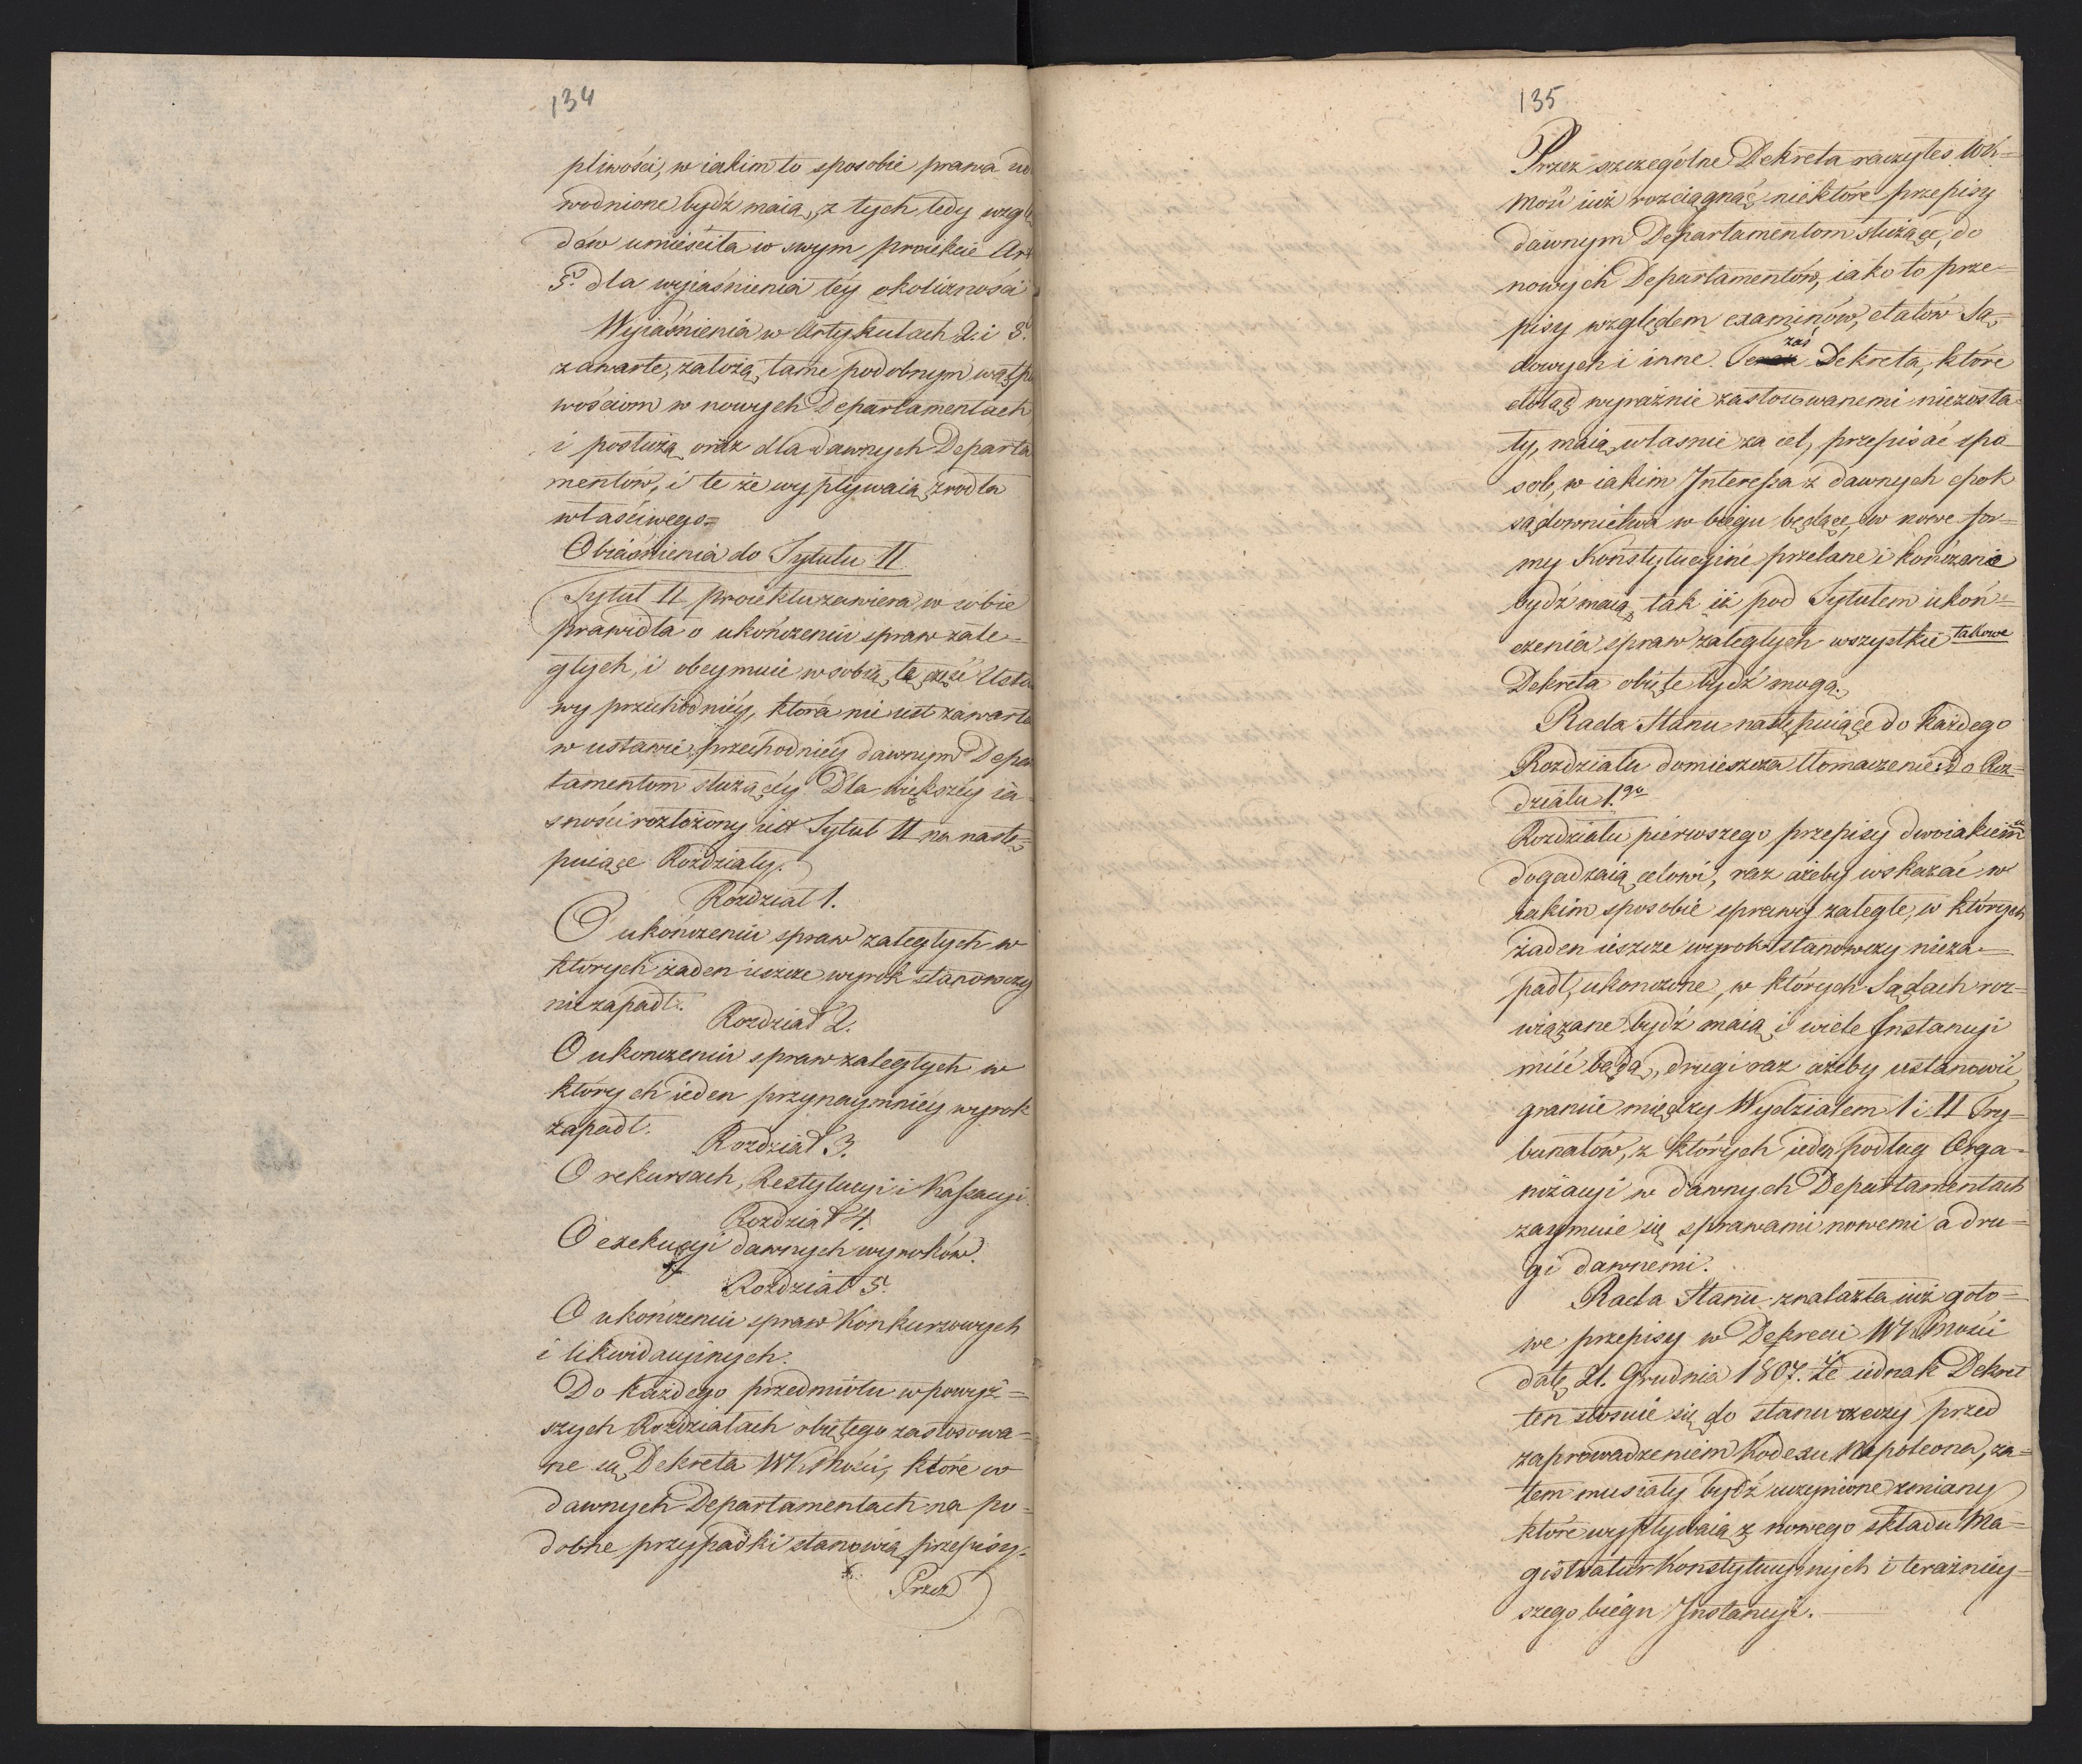 134
pliwości, w iakim to sposobie prawa udo
wodnione bydź maią, z tych tedy wzglę
dów umieściła w swym proiekcie Art
5. dla wyiaśnienia téy okoliczności
Wyiaśnienia w Artykułach 2. i 3.
zawarte, założą tamę podobnym wątpli
wościom w nowych Departamentach
i posłużą oraz dla dawnych Departa
mentów, i te że wypływaią zrodła
właściwego=
Obiaśnienia do Tytułu II.
Tytuł II proiektu zawiera w sobie
prawidła o ukończeniu spraw zale=
głych, i obeymuie w sobie, tę część Usta
wy przechodniéy, która nie iest zawarta
w ustawie przechodniéy dawnym Depar
tamentom służącéy. Dla większéy ia
sności rozłożony iest Tytuł II na nastę=
puiące Rozdziały.
Rozdział 1.
O ukończeniu spraw zaległych w
których żaden ieszcze wyrok stanowczy
nie zapadł.
Rozdział 2.
O ukonczeniu spraw zaległych w
których ieden przynaymniéy wyrok
zapadł.
Rozdział 3.
O rekursach, Restytucyi i Kassacyi.
Rozdział 4.
O exekucyi dawnych wyroków.
Rozdział 5.
O ukończeniu spraw Konkurzowych
i likwidacyinych.
Do każdego przedmiotu w powyż=
szych Rozdziałach obiętego zastosowa=
ne są Dekreta WKMości, które w
dawnych Departamentach na po=
dobne przypadki stanowią przepisy.
Przez
135
Przez szczególne Dekreta raczyłeś WK=
Mość iuż rozciągnąć niektóre przepisy
dawnym Departamentom służące, do
nowych Departamentów, iako to prze=
pisy względem examinów, etatów Są=
dowych i inne. zaś Dekreta, które
dotąd wyraźnie zastosowanemi niezosta=
ły, maią własnie za cel, przepisać spo
sob, w iakim Interessa z dawnych epok
sądownictwa w biegu będące, w nowe for=
my Konstytucyine przelane i kończone
bydź maią, tak iż pod Tytułem ukoń=
czenia spraw zaległych wszystkie takowe
Dekreta obięte bydź mogą.
Rada Stanu następuiące do każdego
Rozdziału domieszcza tłomaczenie: Do Roz=
działu 1.go
Rozdziału pierwszego przepisy dwoiakiemu
dogadzaią celowi, raz ażeby wskazać w
iakim sposobie sprawy zaległe, w których
żaden ieszcze wyrok stanowczy nieza=
padł, ukonczone, w których Sądach roz=
wiązane bydź maią i wiele Instancyi
mieć będą, drugi raz ażeby ustanowić
granice między Wydziałem I i II Try=
bunałów, z których ieden podług Orga=
nizacyi w dawnych Departamentach
zaymuie się sprawami nowemi a dru=
gi dawnemi.
Rada Stanu znalazła iuż goto=
we przepisy w Dekrecie WKMości
datę 21. Grudnia 1807. że iednak Dekret
ten stosuie się do stanu rzeczy przed
zaprowadzeniem Kodexu Napoleona, za=
tem musiały bydź uczynione zmiany
które wypływaią z nowego składu Ma=
gistratur Konstytucyinych i teraźniéy=
szego biegu Instancyi.